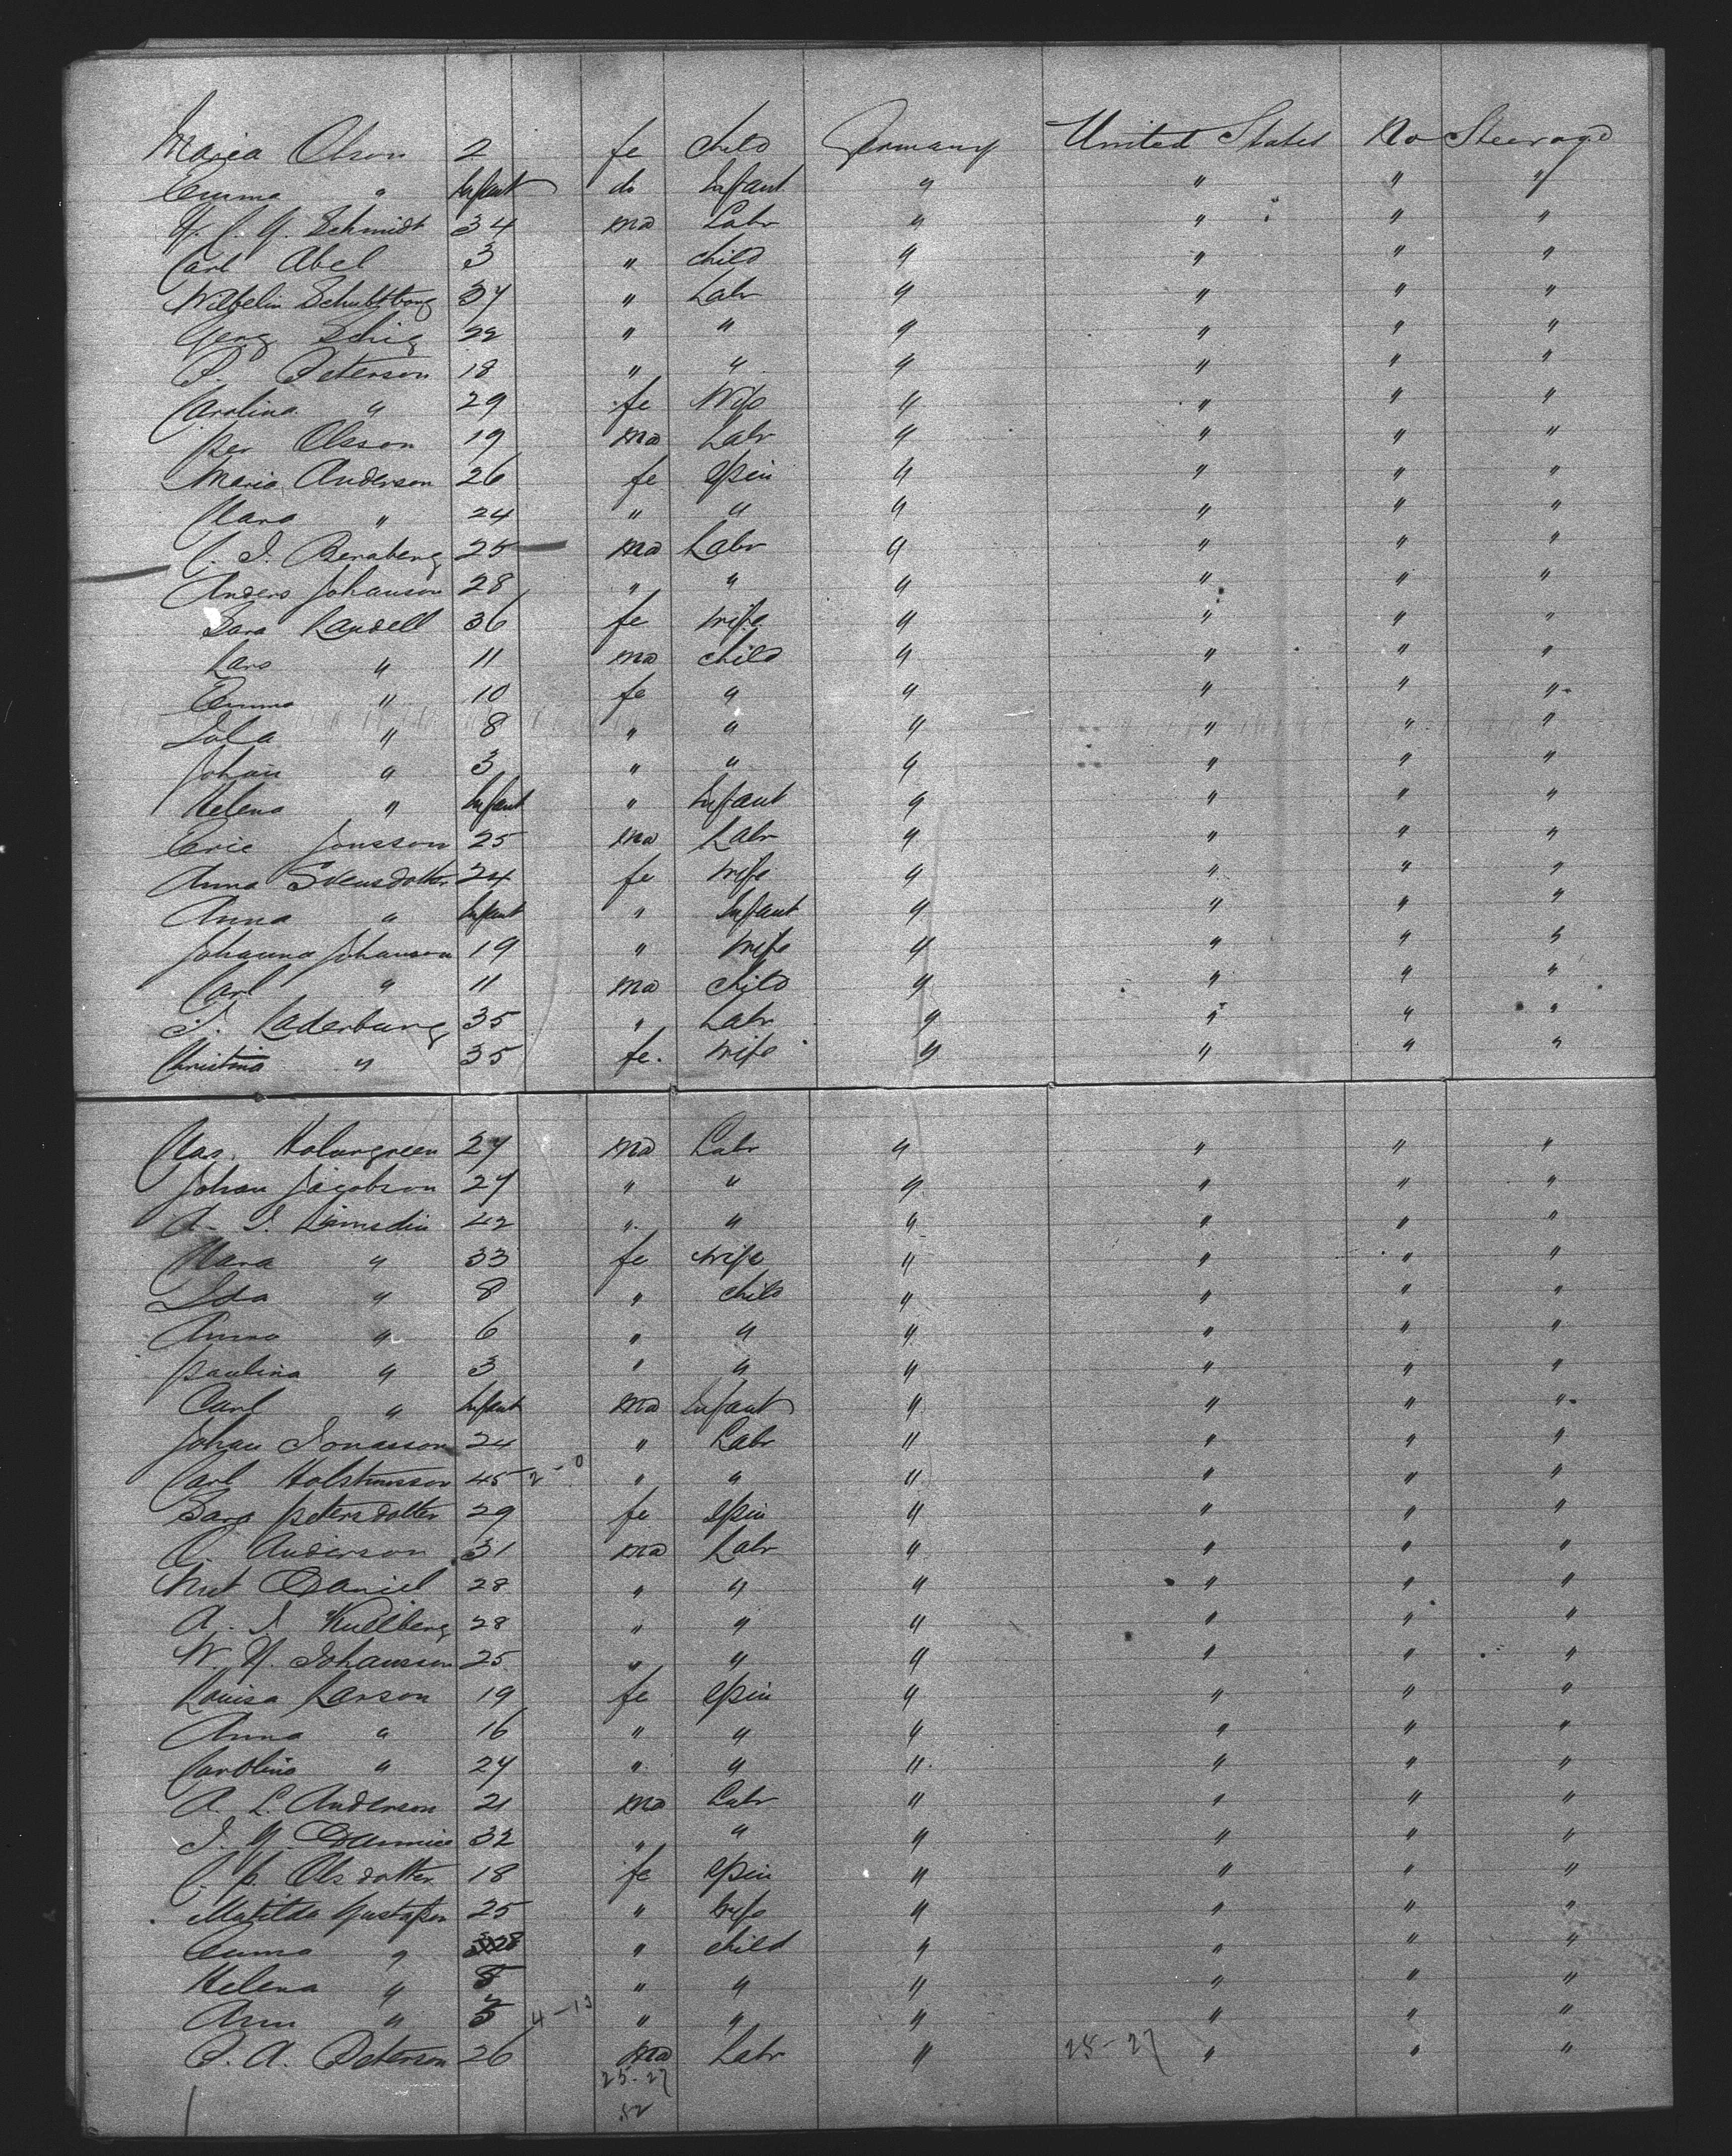 Maria Olson 2 fe child Germany United States No Steerage
Emma " Infant do Infant " " " "
H. C. G. Schmidt 34 ma Labr " " " "
Carl Abel 3 " child " " " "
Wilhelm 37 " Labr " " " "
Georg 22 " " " " " "
P. Peterson 18 " " " " " "
Carolina " 29 fe Wife " " " "
Per Olsson 19 ma Labr " " " "
Maria Anderson 26 fe Spin " " " "
Clara " 24 " " " " " "
C. J. 25 ma Labr " " " "
Anders Johanson 28 " " " " " "
Sara Landell 36 fe wife " " " "
Lars " 11 ma child " " " "
Emma " 10 fe " " " " "
" 8 " " " " " "
Johan " 3 " " " " " "
Helena " Infant " Infant " " " "
Eric Jonsson 25 ma Labr " " " "
Anna Svensdotter 24 fe wife " " " "
Anna " Infant " Infant " " " "
Johanna Johanson 19 " wife " " " "
Carl " 11 ma child " " " "
J. Laderburg 35 " Labr " " " "
Christina " 35 fe. wife " " " "
Holmgreen 27 ma Labr " " " "
Johan Jacobson 27 " " " " " "
A. J. 42 " " " " " "
Clara " 33 fe wife " " " "
Ida " 8 " child " " " "
Anna " 6 " " " " " "
Paulina " 3 " " " " " "
Carl " Infant ma Infant " " " "
Johan Jonasson 24 " Labr " " " "
Carl 45 2-0 " " " " " "
Sara Petersdotter 29 fe Spin " " " "
C. Anderson 31 ma Labr " " " "
Daniel 28 " " " " " "
A. J. Kullberg 28 " " " " " "
W. H. Johansson 25 " " " " " "
Louisa Larson 19 fe Spin " " " "
Anna " 16 " " " " " "
Carolina " 24 " " " " " "
A. L. Anderson 21 ma Labr " " " "
J. G. 32 " " " " " "
C. P. Olsdotter 18 fe Spin " " " "
Matilda Gustafson 25 " wife " " " "
Emma " 28 " child " " " "
Helena " 8 " " " " " "
Ann " 5 4-13 " " " " " "
P. A. Peterson 26 ma Labr " 25-27 " " "
25-27
52